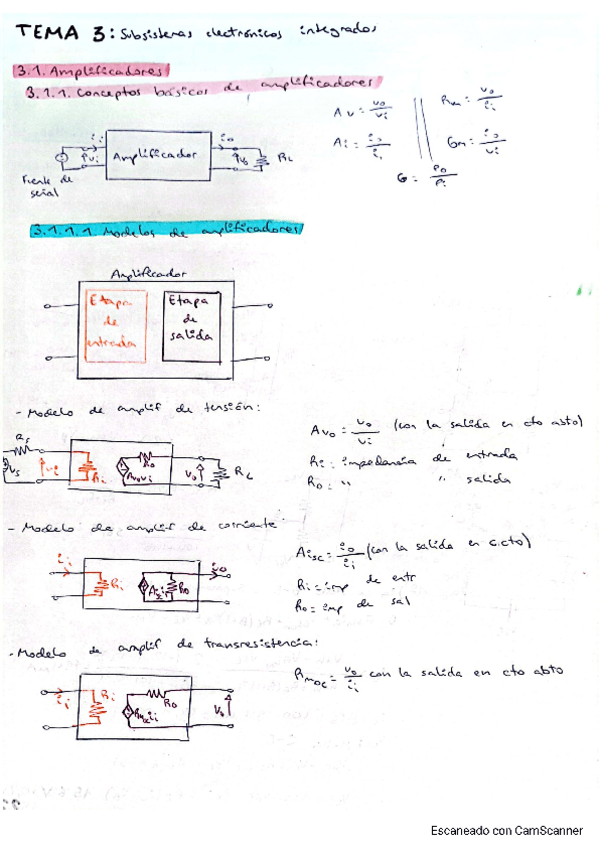 TEMA 3: Subsistemas electrónicos integrados
3.1. Amplificadores
3.1.1. Conceptos básicos de amplificadores
Av = vo/vi
Rm = vo/ii
Ai = io/ii
Gm = io/vi
G = Po/Pi
ii
io
vi
Amplificador
vo
RL
Fuente de
señal
3.1.1.1. Modelos de amplificadores
Amplificador
Etapa de entrada
Etapa de salida
- Modelo de amplif de tensión:
Rs
vs
vi
Ri
Ro
Avovi
vo
RL
Avo = vo/vi (con la salida en cto abto)
Ri = impedancia de entrada
Ro = " " salida
- Modelo de amplif de corriente
ii
Ri
Aiscii
Ro
io
Aisc = io/ii (con la salida en c.cto)
Ri = imp de entr
Ro = imp de sal
- Modelo de amplif de transresistencia:
ii
Ri
Rmocii
Ro
vo
Rmoc = vo/ii con la salida en cto abto
Escaneado con CamScanner